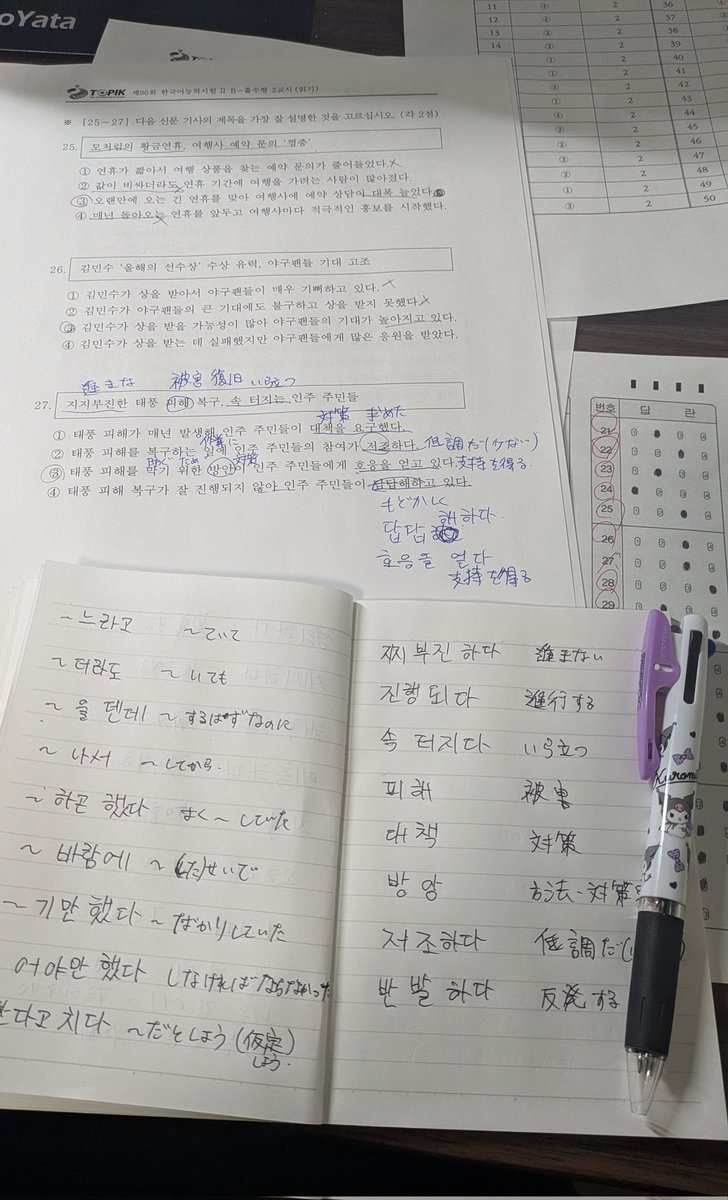 oYata
TOPIK 제96회 한국어능력시험 Ⅱ B-홀수형 2교시 (읽기)
※ [25~27] 다음 신문 기사의 제목을 가장 잘 설명한 것을 고르십시오. (각 2점)
25. 모처럼의 황금연휴, 여행사 예약 문의 '껑충'
① 연휴가 짧아서 여행 상품을 찾는 예약 문의가 줄어들었다.
② 값이 비싸더라도 연휴 기간에 여행을 가려는 사람이 많아졌다.
③ 오랜만에 오는 긴 연휴를 맞아 여행사에 예약 상담이 대폭 늘었다.
④ 매년 돌아오는 연휴를 앞두고 여행사마다 적극적인 홍보를 시작했다.
26. 김민수 '올해의 선수상' 수상 유력, 야구팬들 기대 고조
① 김민수가 상을 받아서 야구팬들이 매우 기뻐하고 있다.
② 김민수가 야구팬들의 큰 기대에도 불구하고 상을 받지 못했다.
③ 김민수가 상을 받을 가능성이 많아 야구팬들의 기대가 높아지고 있다.
④ 김민수가 상을 받는 데 실패했지만 야구팬들에게 많은 응원을 받았다.
進まな 被害 復旧 いら立つ
27. 지지부진한 태풍 피해 복구, 속 터지는 인주 주민들
対策 求めた
① 태풍 피해가 매년 발생해 인주 주민들이 대책을 요구했다.
作業に
② 태풍 피해를 복구하는 일에 인주 주민들의 참여가 저조하다. 低調だ(少ない)
防ぐため 対策
③ 태풍 피해를 막기 위한 방안이 인주 주민들에게 호응을 얻고 있다. 支持を得る
④ 태풍 피해 복구가 잘 진행되지 않아 인주 주민들이 답답해하고 있다.
もどかしく
답답해하다
호응을 얻다
支持を得る
11 ④ 2 36 ④
12 ④ 2 37
13 2 38
14 2 39
2 40
2 41
2 42
2 43
2 44
2 45
2 46
2 47
2 48
① 2 49
③ 2 50
번호 답 란
21
22
23
24
25
26
27
28
29
~느라고 ~ていて
~더라도 ~いても
~을 텐데 ~するはずなのに
~나서 ~してから
~하곤 했다 よく~していた
~바람에 ~(した)せいで
~기만 했다 ~ばかりしていた
어야만 했다 しなければならなかった
다고 치다 ~だとしよう(仮定)
しよう.
찌부진하다 進まない
진행되다 進行する
속 터지다 いら立つ
피해 被害
대책 対策
방안 方法・対策
저조하다 低調だ(
반발하다 反発する
Kuromi